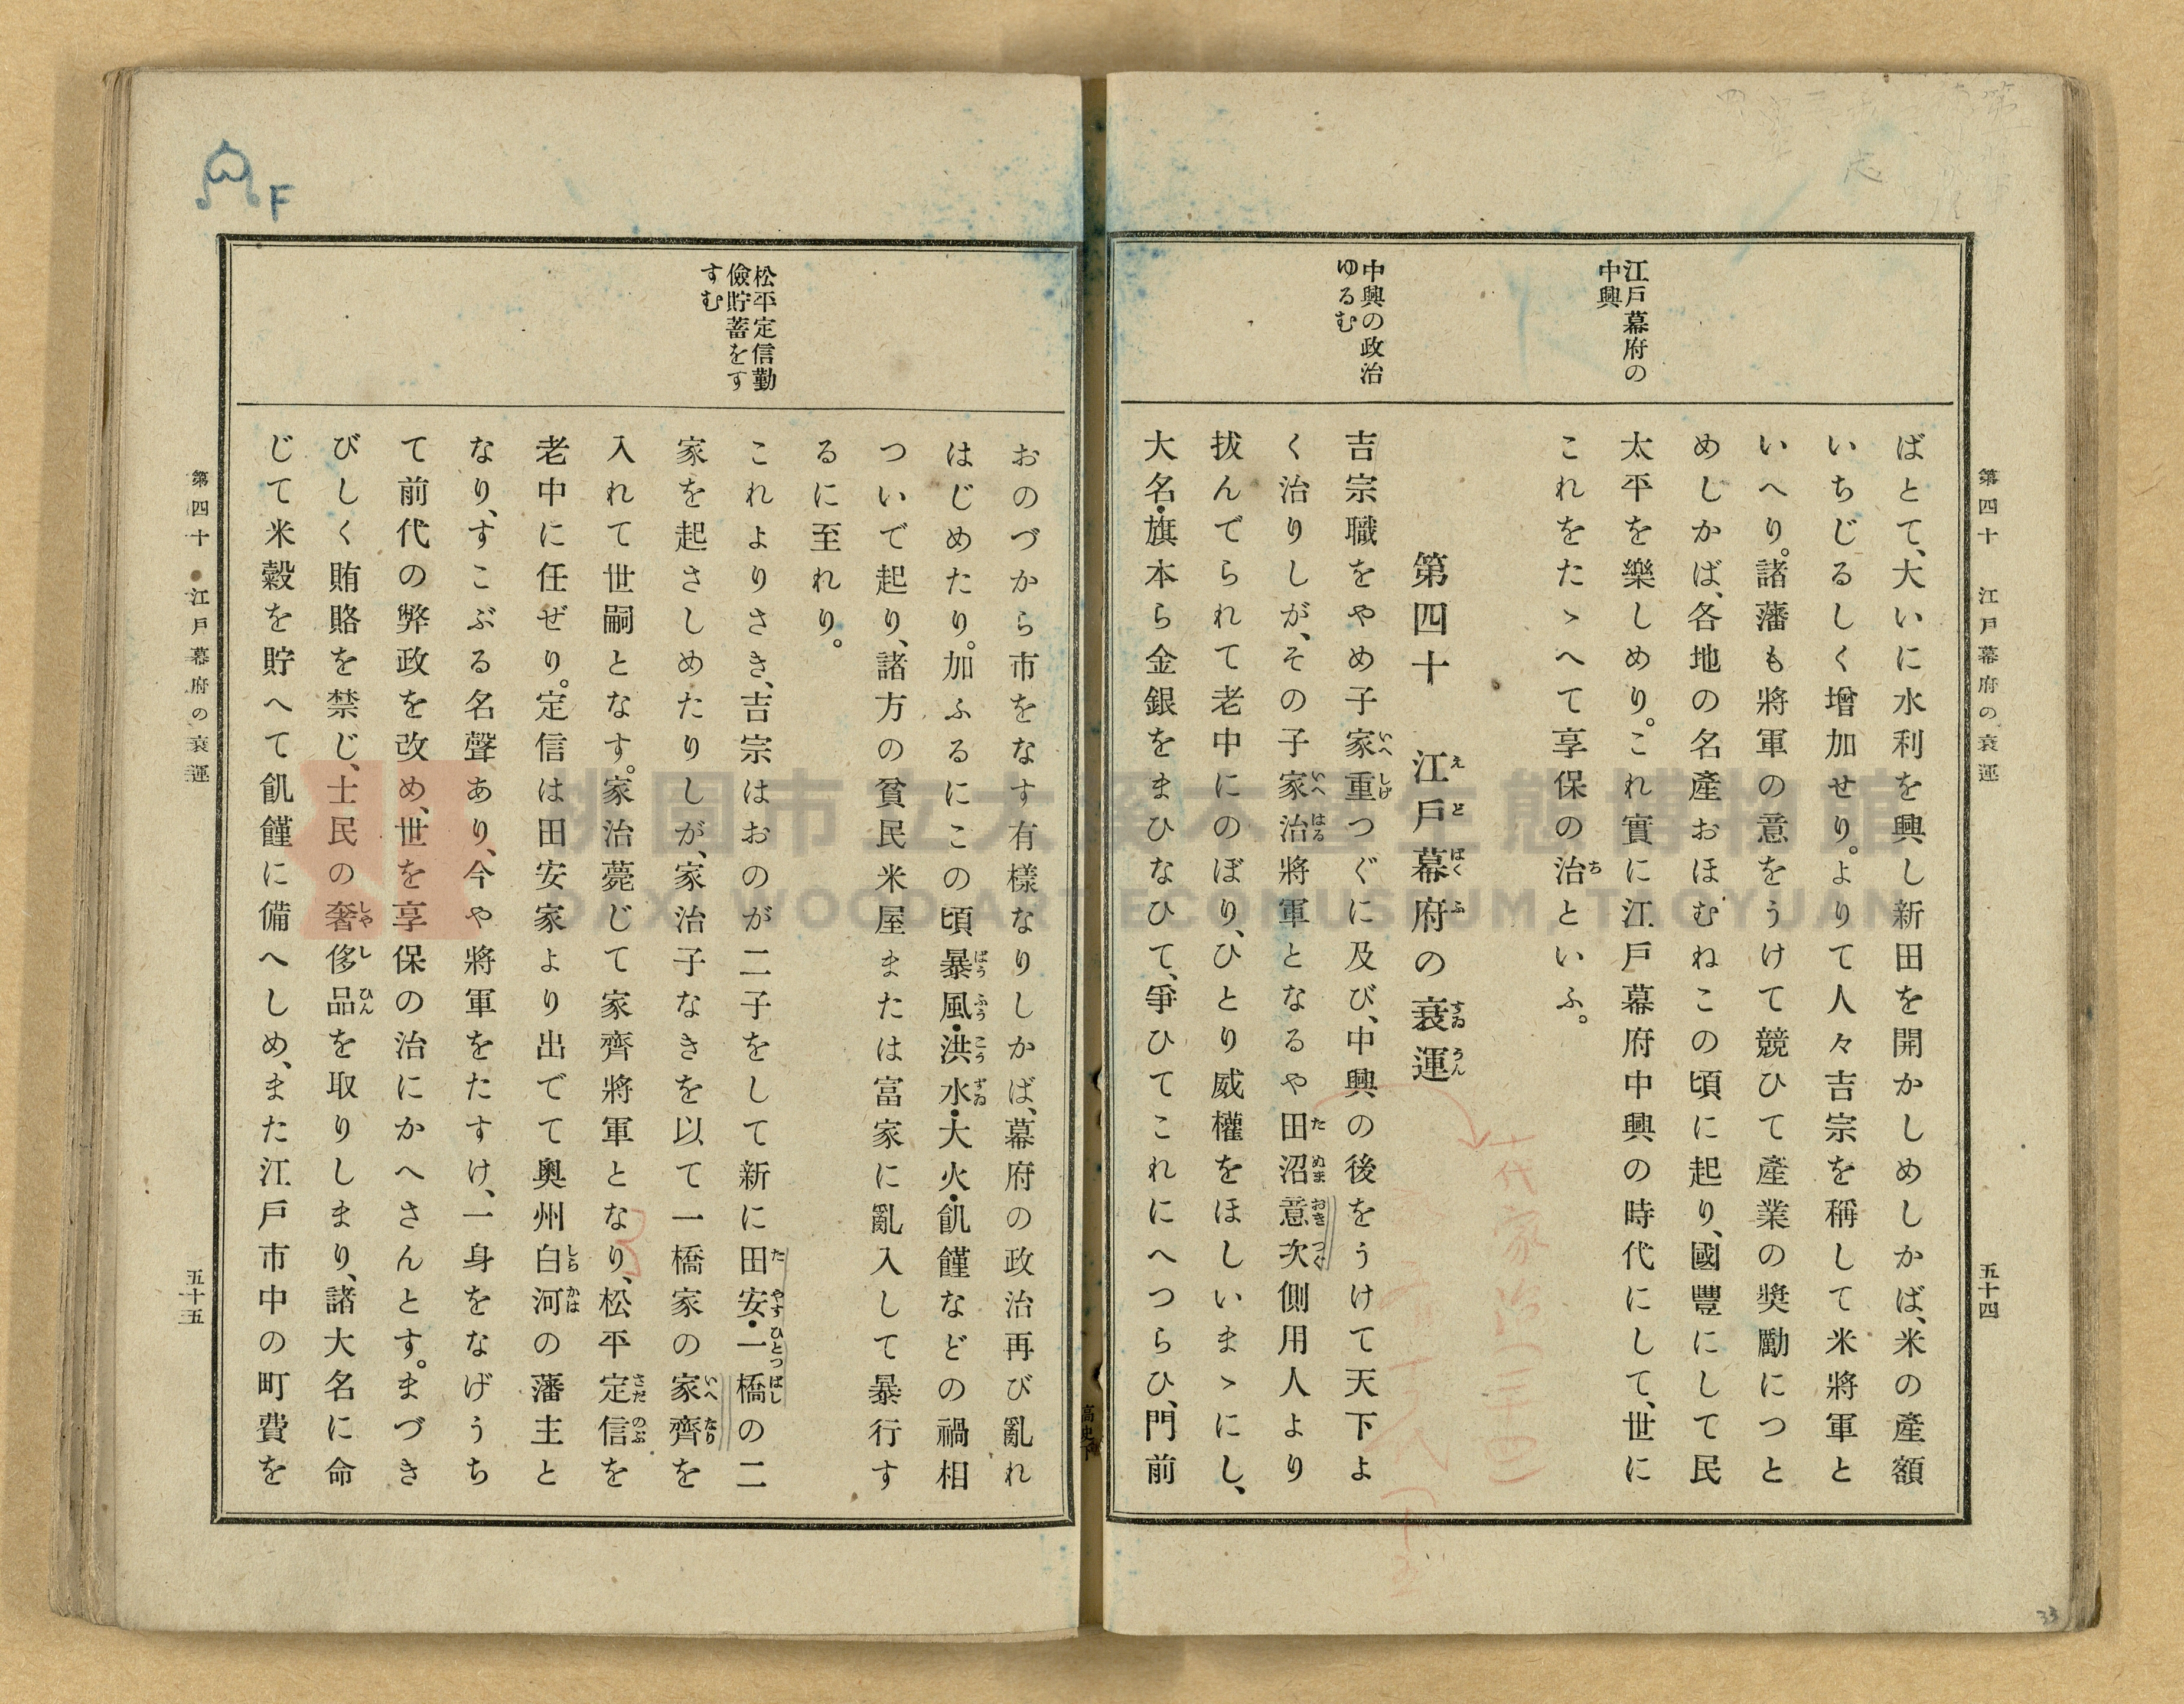 第四十　江戸幕府の衰運
五十四
江戸幕府の
中興
中興の政治
ゆるむ
ばとて、大いに水利を興し新田を開かしめしかば、米の產額
いちじるしく增加せり。よりて人々吉宗を稱して米將軍と
いへり。諸藩も將軍の意をうけて競ひて產業の奬勵につと
めしかば、各地の名產おほむねこの頃に起り、國豐にして民
太平を樂しめり。これ實に江戸幕府中興の時代にして、世に
これをたゝへて享保の治といふ。
第四十　江戸幕府の衰運
吉宗職をやめ子家重つぐに及び、中興の後をうけて天下よ
く治りしが、その子家治將軍となるや田沼意次側用人より
拔んでられて老中にのぼり、ひとり威權をほしいまゝにし、
大名・旗本ら金銀をまひなひて、爭ひてこれにへつらひ、門前
松平定信勤
儉貯蓄をす
すむ
おのづから市をなす有樣なりしかば、幕府の政治再び亂れ
はじめたり。加ふるにこの頃暴風・洪水・大火・飢饉などの禍相
ついで起り、諸方の貧民米屋または富家に亂入して暴行す
るに至れり。
これよりさき、吉宗はおのが二子をして新に田安・一橋の二
家を起さしめたりしが、家治子なきを以て一橋家の家齊を
入れて世嗣となす。家治薨じて家齊將軍となり、松平定信を
老中に任ぜり。定信は田安家より出でて奧州白河の藩主と
なり、すこぶる名聲あり、今や將軍をたすけ、一身をなげうち
て前代の弊政を改め、世を享保の治にかへさんとす。まづき
びしく賄賂を禁じ、士民の奢侈品を取りしまり、諸大名に命
じて米穀を貯へて飢饉に備へしめ、また江戸市中の町費を
第四十　江戸幕府の衰運
五十五
高史下
F
33
十代家治(二四)
桃園市立大溪木藝生態博物館
DAXI WOOD ART ECOMUSEUM, TAOYUAN